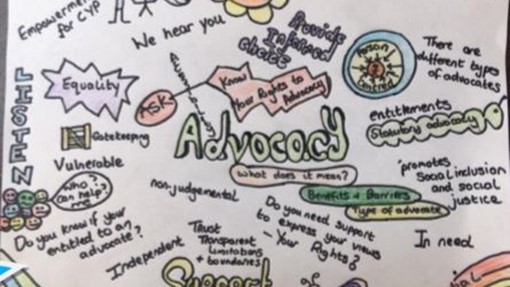 Empowerment
for CYP
We hear you
Provide
Informed
Choice
Person
Centred
There are
different types
of advocates
LISTEN
Equality
ASK
Know
Your Rights to
Advocacy
entitlements
Statutory advocacy
Gatekeeping
Advocacy
Vulnerable
What does it mean?
promotes
Social inclusion
and social
justice
Who?
can help
me?
non-judgemental
Benefits & Barriers
Type of advocate
Do you know if your
entitled to an
advocate?
Trust
Transparent
limitations
+ boundaries
Do you need support
to express your views
- Your Rights?
In need
Independent
Support